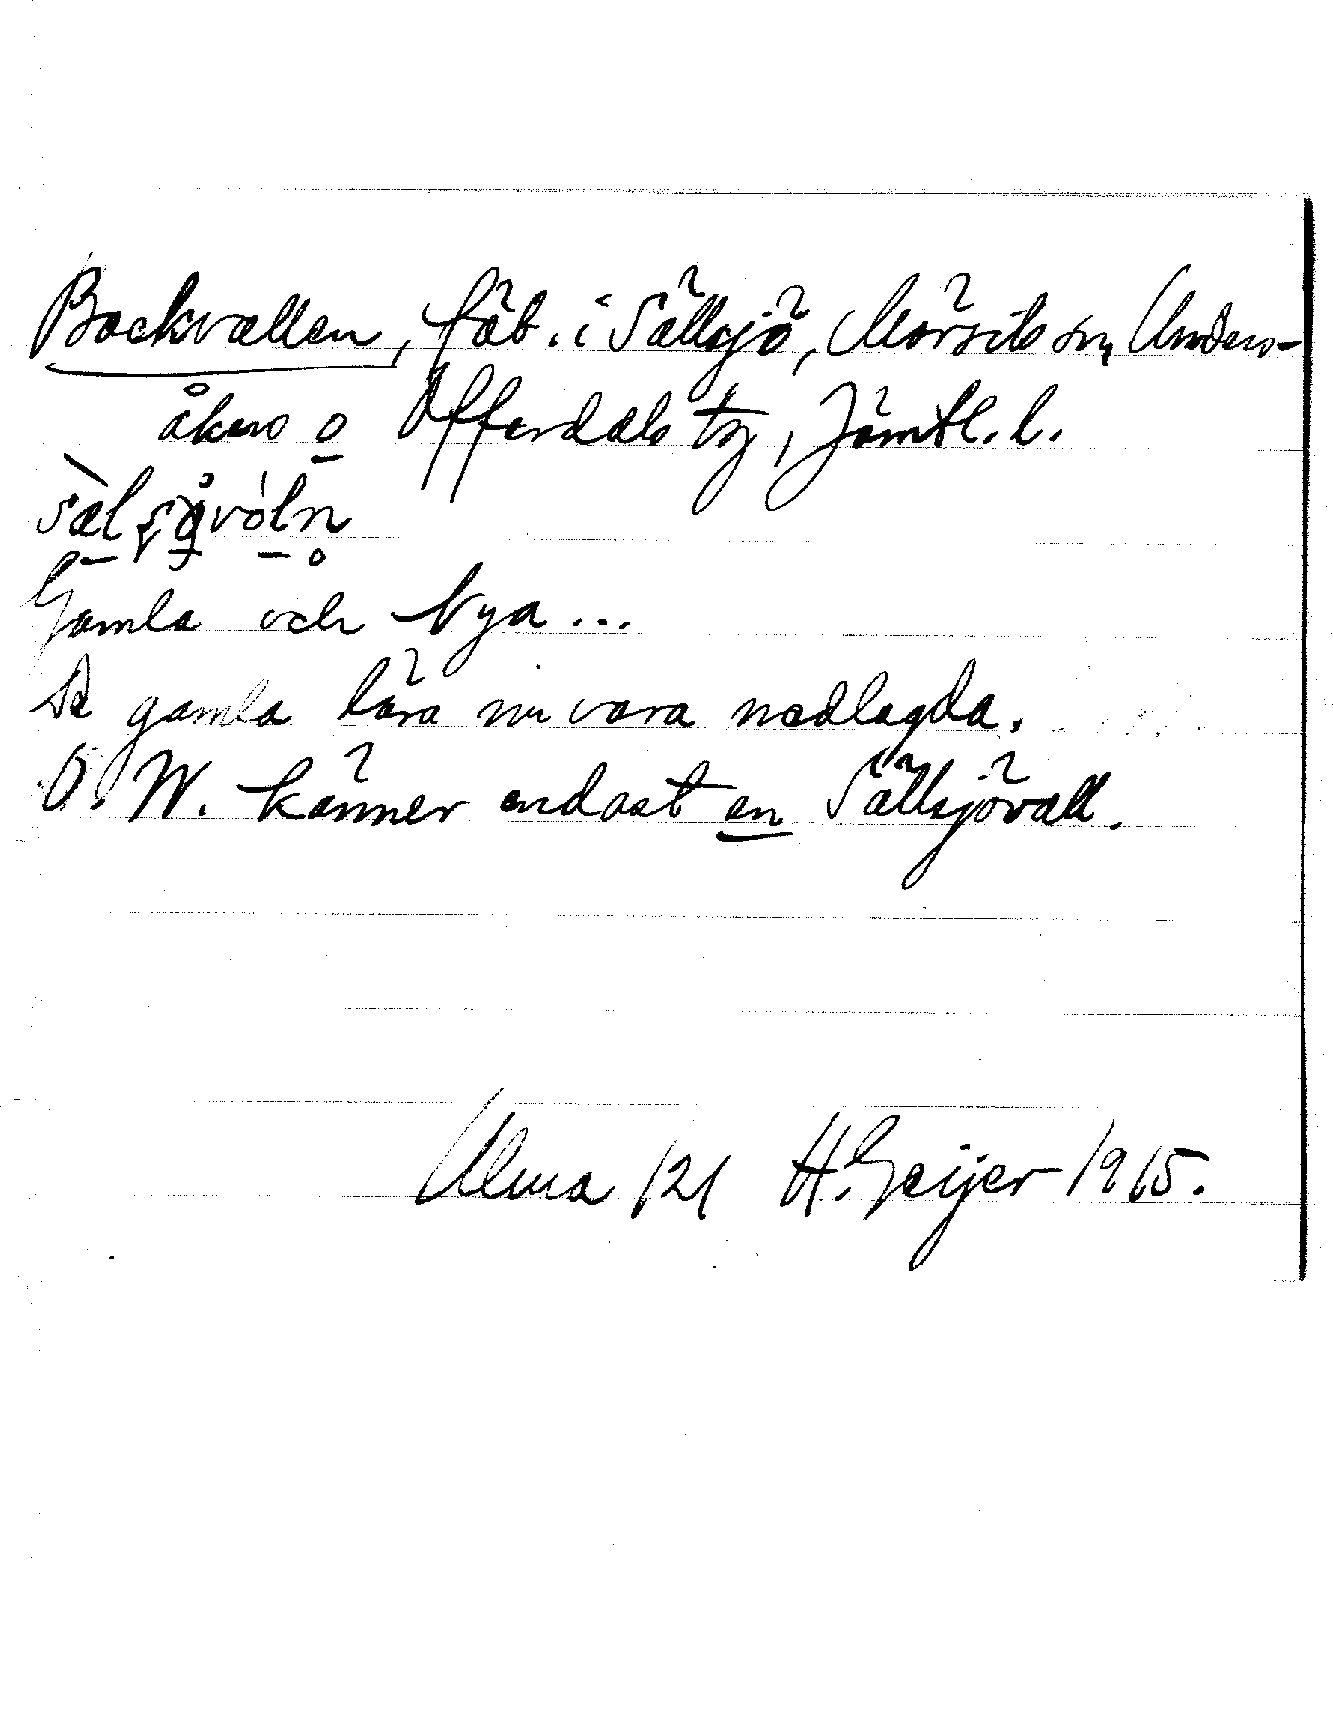 Backvallen, fäb. i Sällsjö, Mörsils sn, Unders-
åkers o Offerdals tg, Jämtl. l.
Gamla och Nya...
De gamla lära nu vara nedlagda.
O. W. känner endast en Sällsjövall.
Alma 121 H. Geijer 1915.